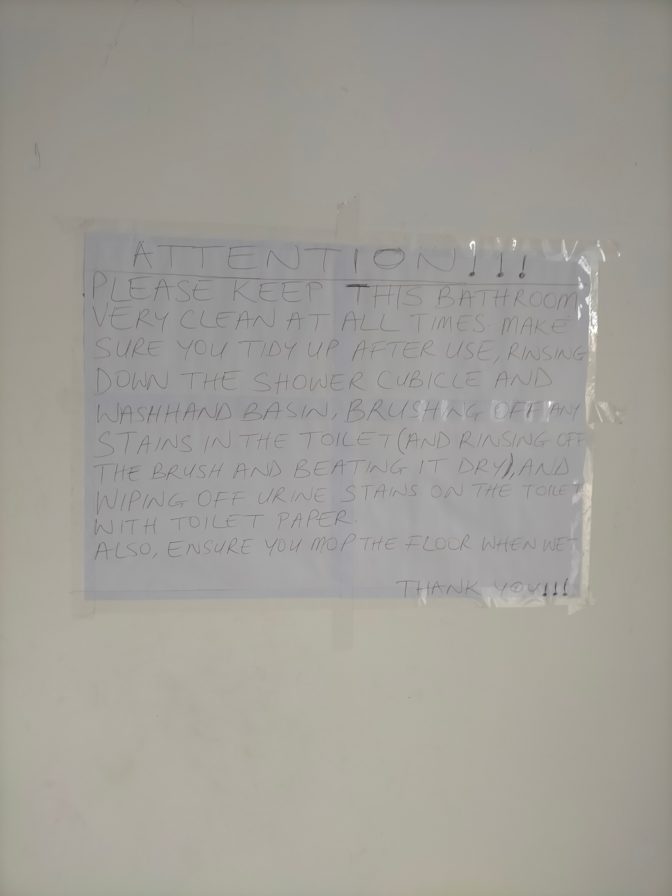 ATTENTION!!!
PLEASE KEEP THIS BATHROOM
VERY CLEAN AT ALL TIMES. MAKE
SURE YOU TIDY UP AFTER USE, RINSING
DOWN THE SHOWER CUBICLE AND
WASHHAND BASIN, BRUSHING OFF ANY
STAINS IN THE TOILET (AND RINSING OFF
THE BRUSH AND BEATING IT DRY), AND
WIPING OFF URINE STAINS ON THE TOILET
WITH TOILET PAPER.
ALSO, ENSURE YOU MOP THE FLOOR WHEN WET.
THANK YOU!!!